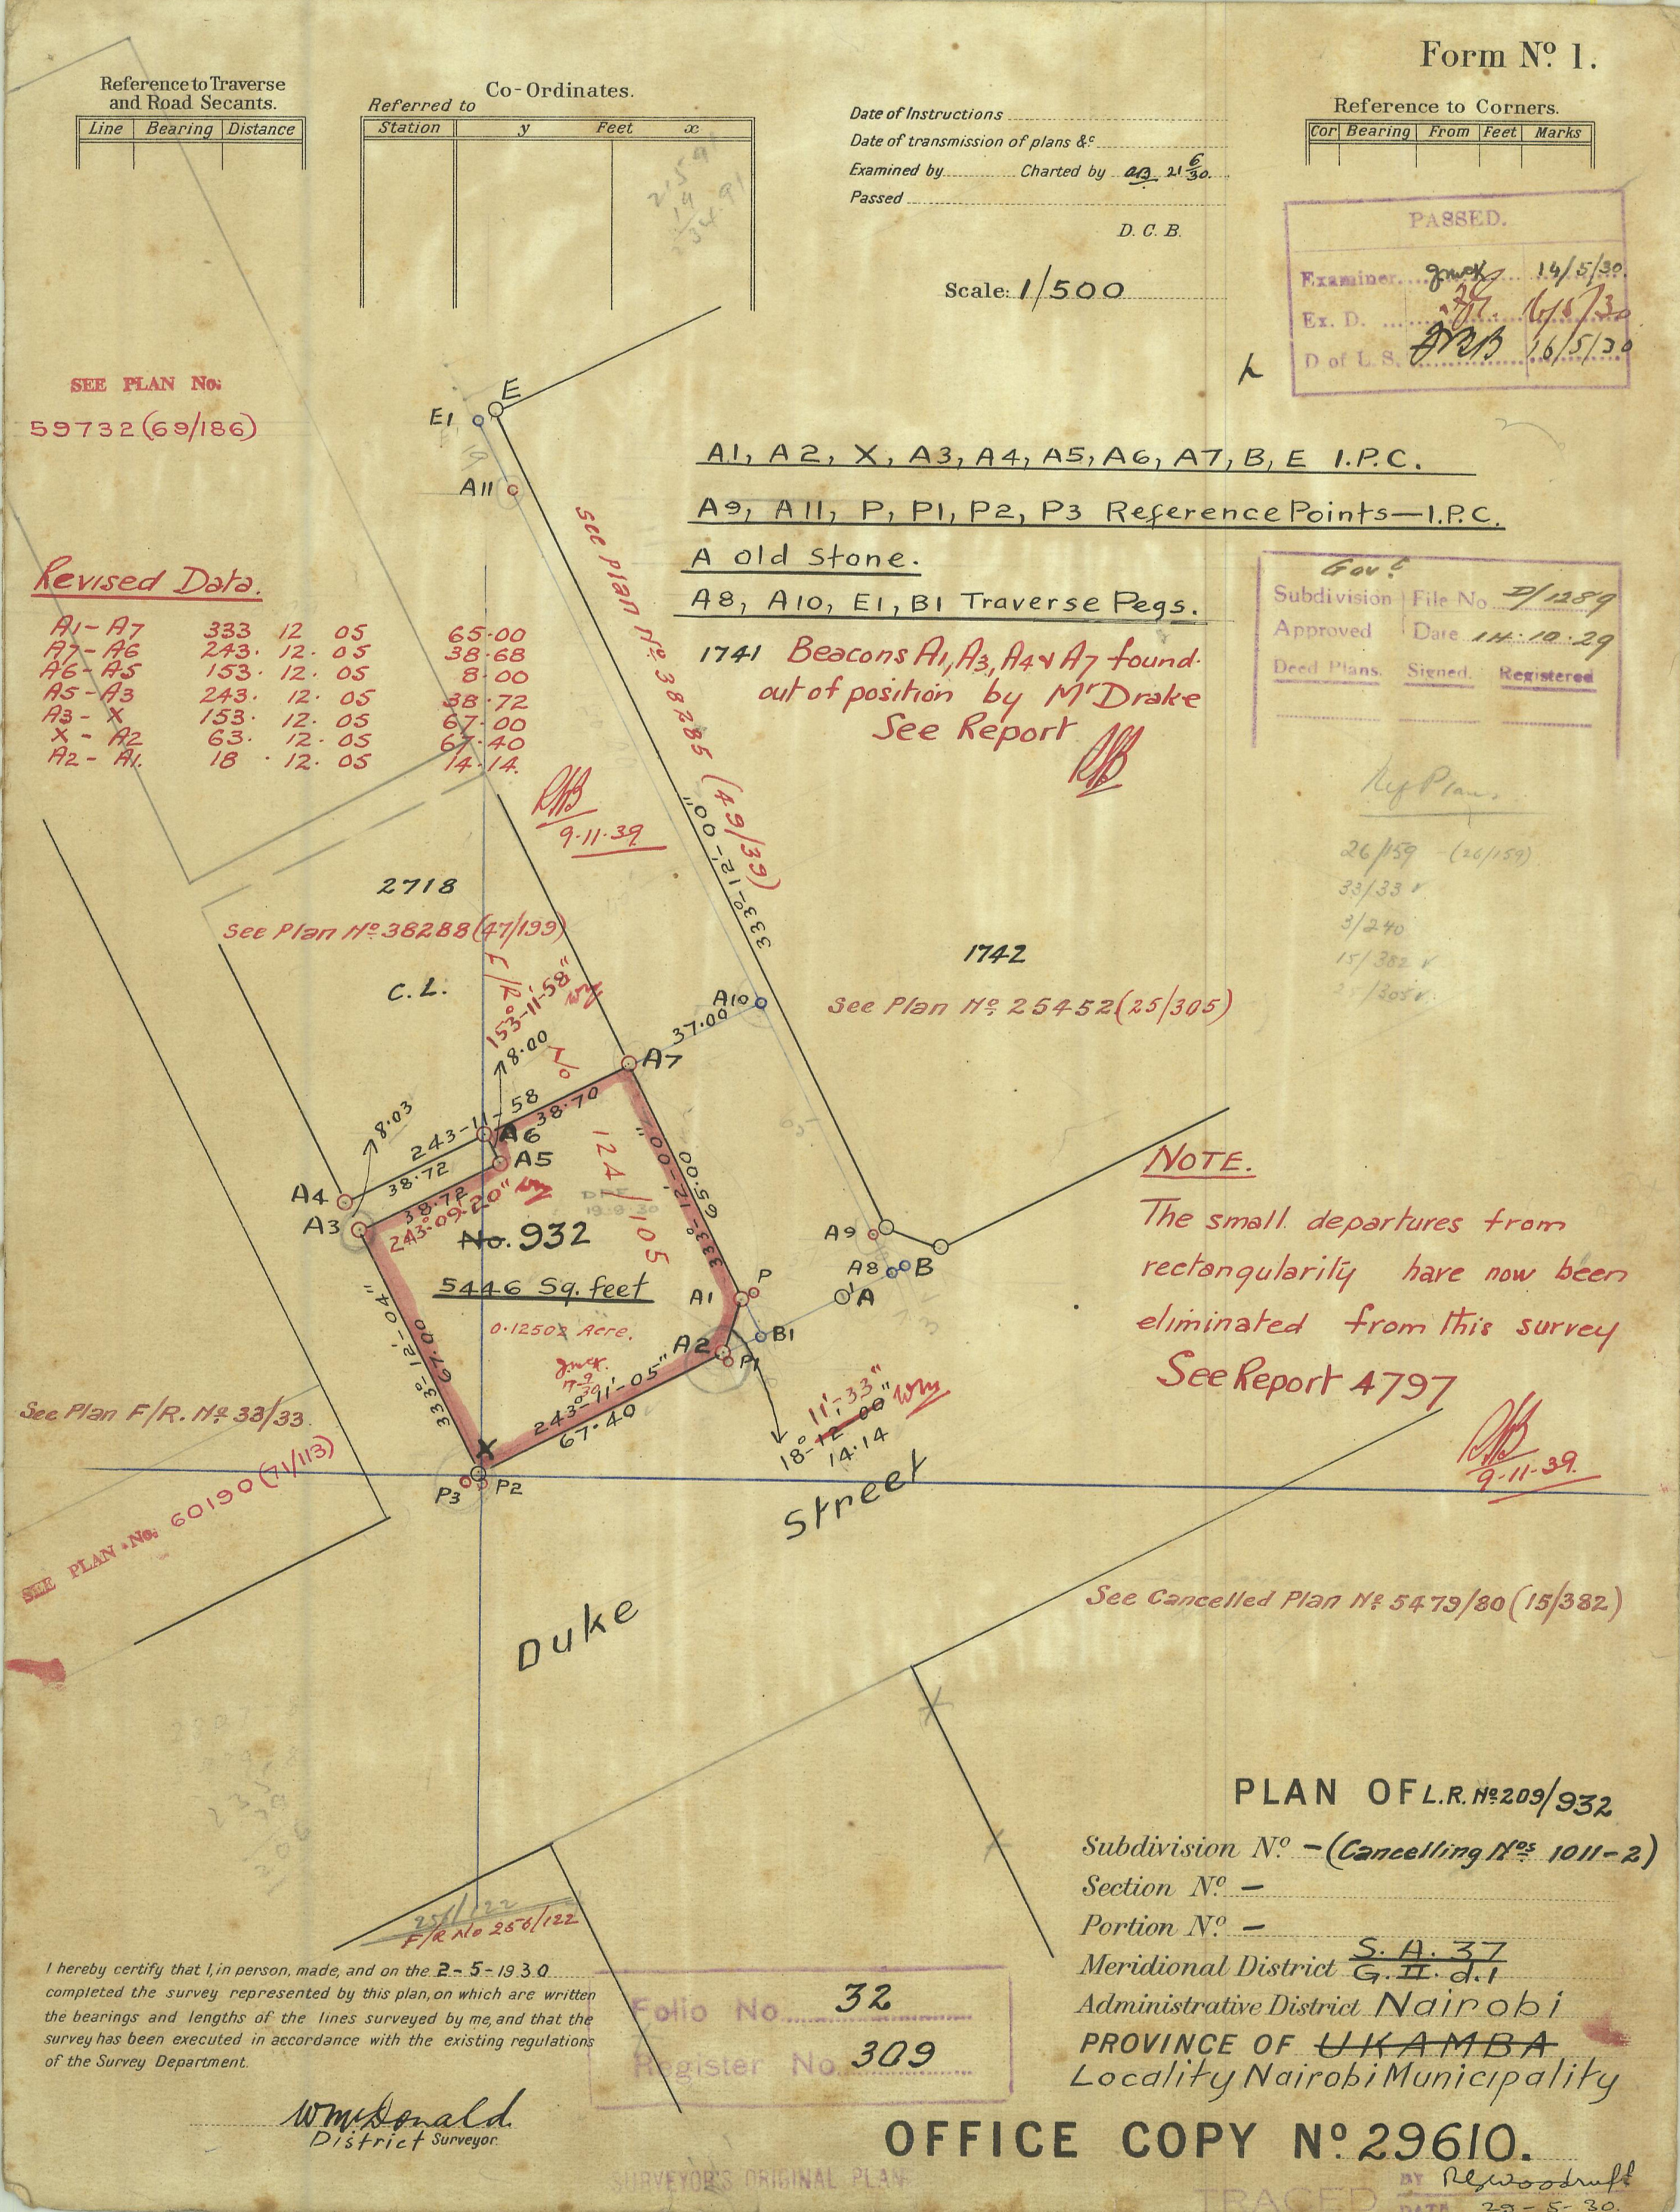 Form Nº 1.
Reference to Traverse
and Road Secants.
Line Bearing Distance
Co-Ordinates.
Referred to
Station y Feet x
Date of Instructions
Date of transmission of plans &c
Examined by Charted by 21 6/30.
Passed
D. C. B.
Scale: 1/500
Reference to Corners.
Cor Bearing From Feet Marks
PASSED.
Examiner 14/5/30
Ex. D.
D of L. S. 16/5/30
SEE PLAN No:
59732(69/186)
E
E1
A11
see plan Nº 38285 (49/39)
A1, A2, X, A3, A4, A5, A6, A7, B, E I.P.C.
A9, A11, P, P1, P2, P3 Reference Points—I.P.C.
A Old Stone.
A8, A10, E1, B1 Traverse Pegs.
1741 Beacons A1, A3, A4 & A7 found
out of position by Mr Drake
See Report
Govt
Subdivision File No D/1289
Approved Date 14.10.29
Deed Plans. Signed. Registered
Revised Data.
A1-A7 333 12 05 65.00
A7-A6 243. 12. 05 38.68
A6-A5 153. 12. 05 8.00
A5-A3 243. 12. 05 38.72
A3-X 153. 12. 05 67.00
X-A2 63. 12. 05 67.40
A2-A1. 18. 12. 05 14.14.
9.11.39
Ref Plan.
26/159 (26/159)
33/33
3/240
15/382
333º-12'-00"
2718
See Plan Nº 38288(47/199)
C.L.
F/R
153º-11'-58"
8.00
1742
See Plan Nº 25452(25/305)
A10
37.00
A7
8.03
243-11-58
38.70
38.72
A6
A5
A4
A3
38.72
243º.09'.20"
124/105
333º-12'-00"
65.00
No. 932
5446 Sq. feet
0.12502 Acre.
333º-12'-04"
67.00
243º-11'-05"
67.40
A1
P
A2
P1
B1
A9
A8
B
A
X
P3
P2
11'-33" WM
18º-12'-00"
14.14
NOTE.
The small departures from
rectangularity have now been
eliminated from this survey
See Report 4797
9-11-39.
See Plan F/R. Nº 33/33.
SEE PLAN No: 60190(71/113)
Duke Street
See Cancelled Plan Nº 5479/80 (15/382)
256/122
F/R No 256/122
PLAN OF L.R. Nº 209/932
Subdivision Nº -(Cancelling Nos 1011-2)
Section Nº —
Portion Nº —
Meridional District S. A. 37
G. II. d.1
Administrative District Nairobi
PROVINCE OF UKAMBA
Locality Nairobi Municipality
I hereby certify that I, in person, made, and on the 2-5-1930
completed the survey represented by this plan, on which are written
the bearings and lengths of the lines surveyed by me, and that the
survey has been executed in accordance with the existing regulations
of the Survey Department.
WMcDonald
District Surveyor
Folio No 32
Register No 309
OFFICE COPY Nº 29610.
SURVEYOR'S ORIGINAL PLAN
TRACED BY RGWoodruff
DATE 29-5-30.